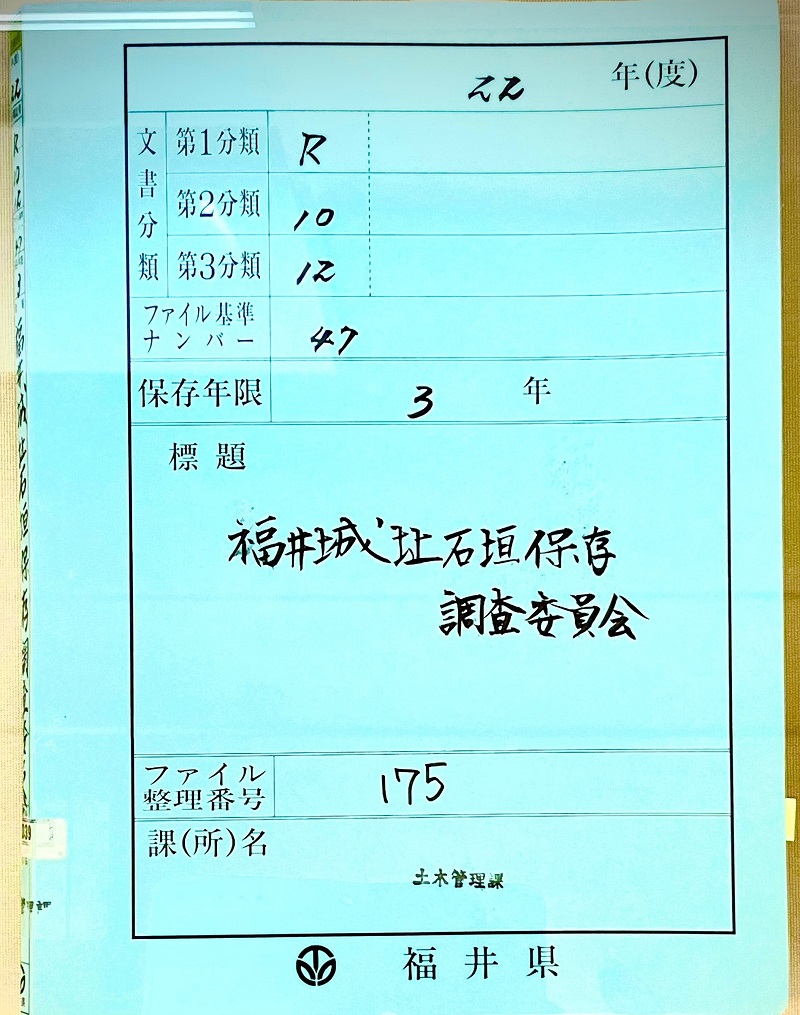 22 年(度)
文書分類
第1分類 R
第2分類 10
第3分類 12
ファイル基準
ナンバー 47
保存年限 3 年
標題
福井城址石垣保存
調査委員会
ファイル
整理番号 175
課(所)名
土木管理課
福井県